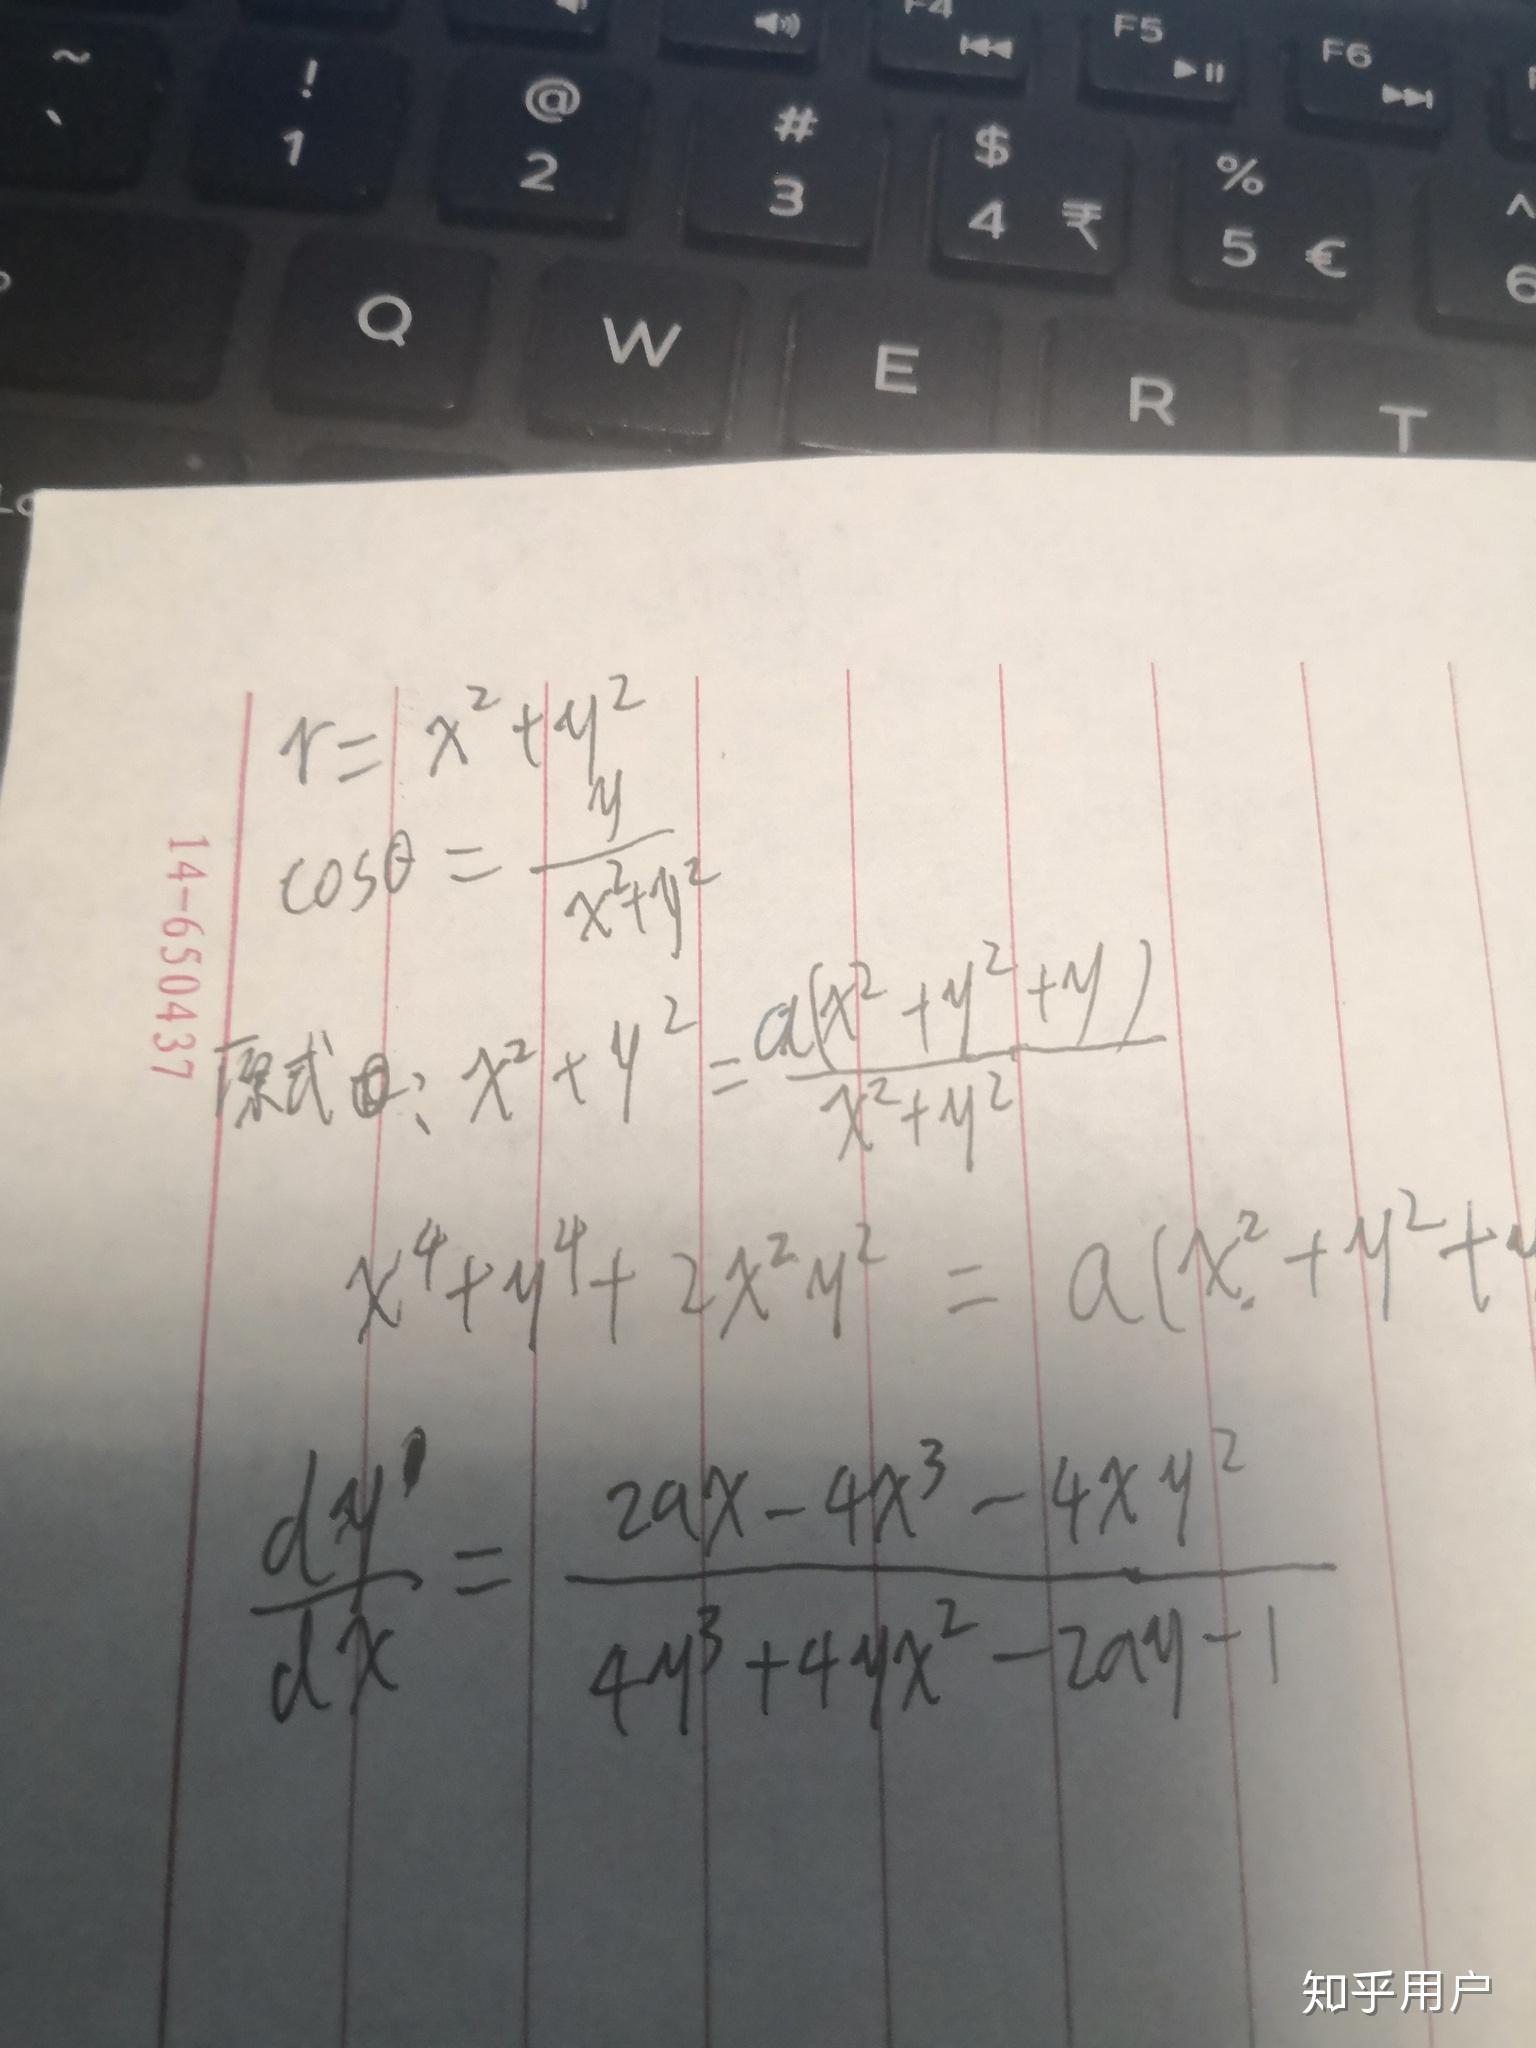 F4
F5
F6
~ ! @ # $ % ^
` 1 2 3 4 ₹ 5 € 6
Q W E R T
14-650437
r = x² + y²
cosθ = y / (x²+y²)
原式 θ: x² + y² = a(x² + y² + y) / (x² + y²)
x⁴ + y⁴ + 2x²y² = a(x² + y² + y
dy / dx = (2ax - 4x³ - 4xy²) / (4y³ + 4yx² - 2ay - 1)
知乎用户